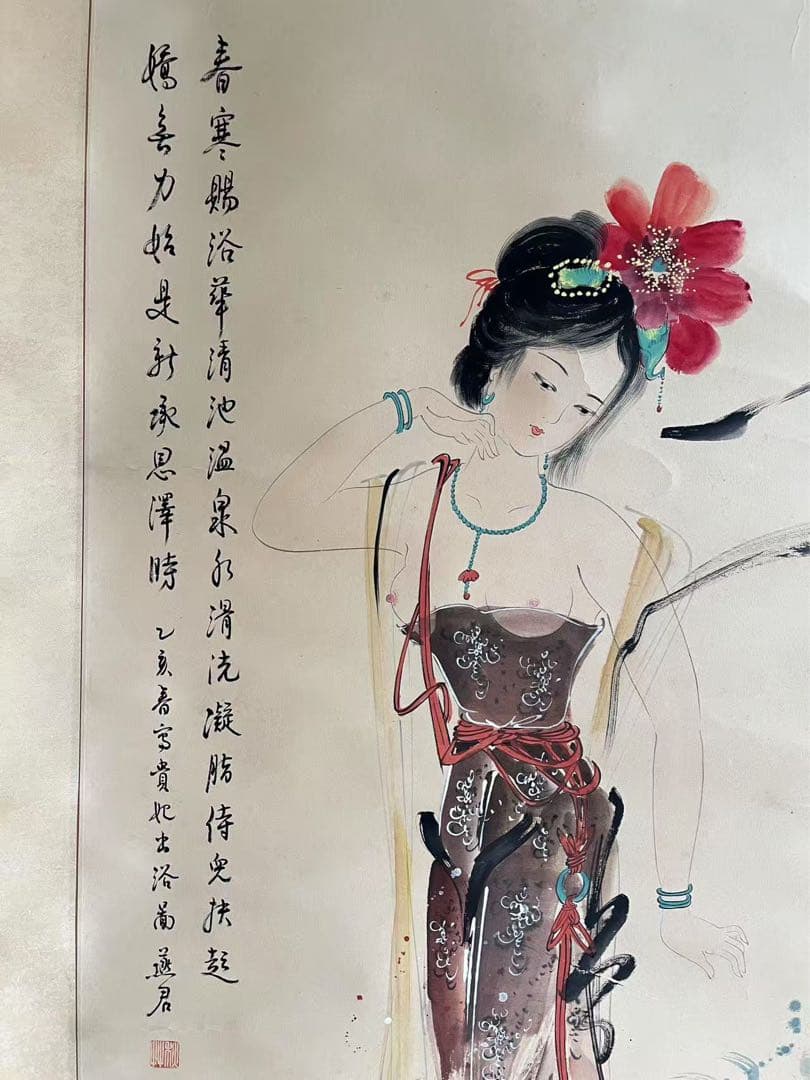 春寒賜浴華清池温泉水滑洗凝脂侍兒扶起
嬌無力始是新承恩澤時 乙亥春寫貴妃出浴圖 燕君